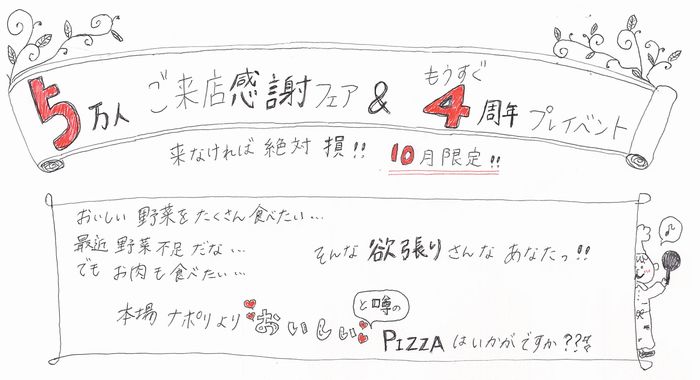 5万人 ご来店感謝フェア & もうすぐ 4周年 プレイベント
来なければ 絶対 損!! 10月限定!!
おいしい 野菜を たくさん 食べたい…
最近 野菜不足 だな…
でも お肉も 食べたい…
そんな 欲張り さんな あなたっ!!
本場 ナポリより おいしい と噂の
PIZZA は いかが ですか??